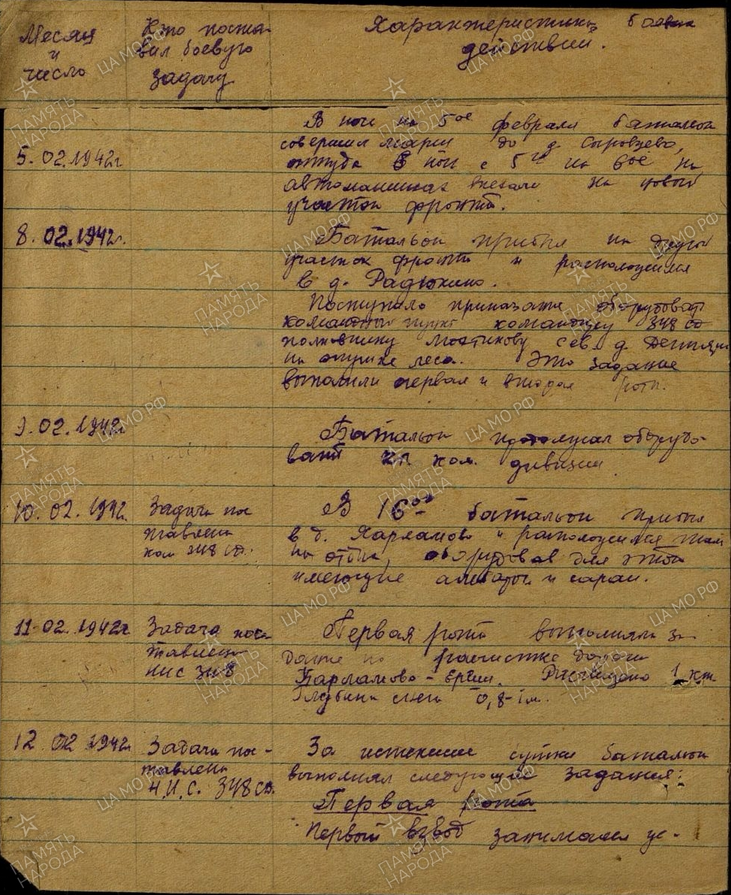 Месяц и число
Кто поставил боевую задачу
Характеристика боевых действий.
5.02.1942г.
В ночь на 5ое февраля батальон
совершил марш до д.
оттуда в ночь с 5го на 6ое на
автомашинах выехали на новый
участок фронта.
8.02.1942г.
Батальон прибыл на другой
участок фронта и расположился
в д. Радюкино.
Поступило приказание оборудовать
командный пункт командиру 348 сд
полковнику сев. д.
на опушке леса. Это задание
выполнили первая и вторая роты.
9.02.1942г.
Батальон продолжал оборудо-
вать кп ком. дивизии.
10.02.1942
Задача по-
ставлена
ком 348 сд.
В 16оо батальон прибыл
в д. Харламово и расположился там
на отдых, оборудовав для этой
имеющие амбары и сараи.
11.02.1942г
Задача пос-
тавлена
НИС 348
Первая рота выполняла за-
дание по расчистке дороги
Харламово - Расчищено 1 км
глубина снега 0,8-1м.
12.02.1942г
Задача пос-
тавлена
Н.И.С. 348 сд.
За истекшие сутки батальон
выполнял следующие задания:
Первая рота
Первый взвод занимался ус-
ПАМЯТЬ НАРОДА
ЦАМО.РФ